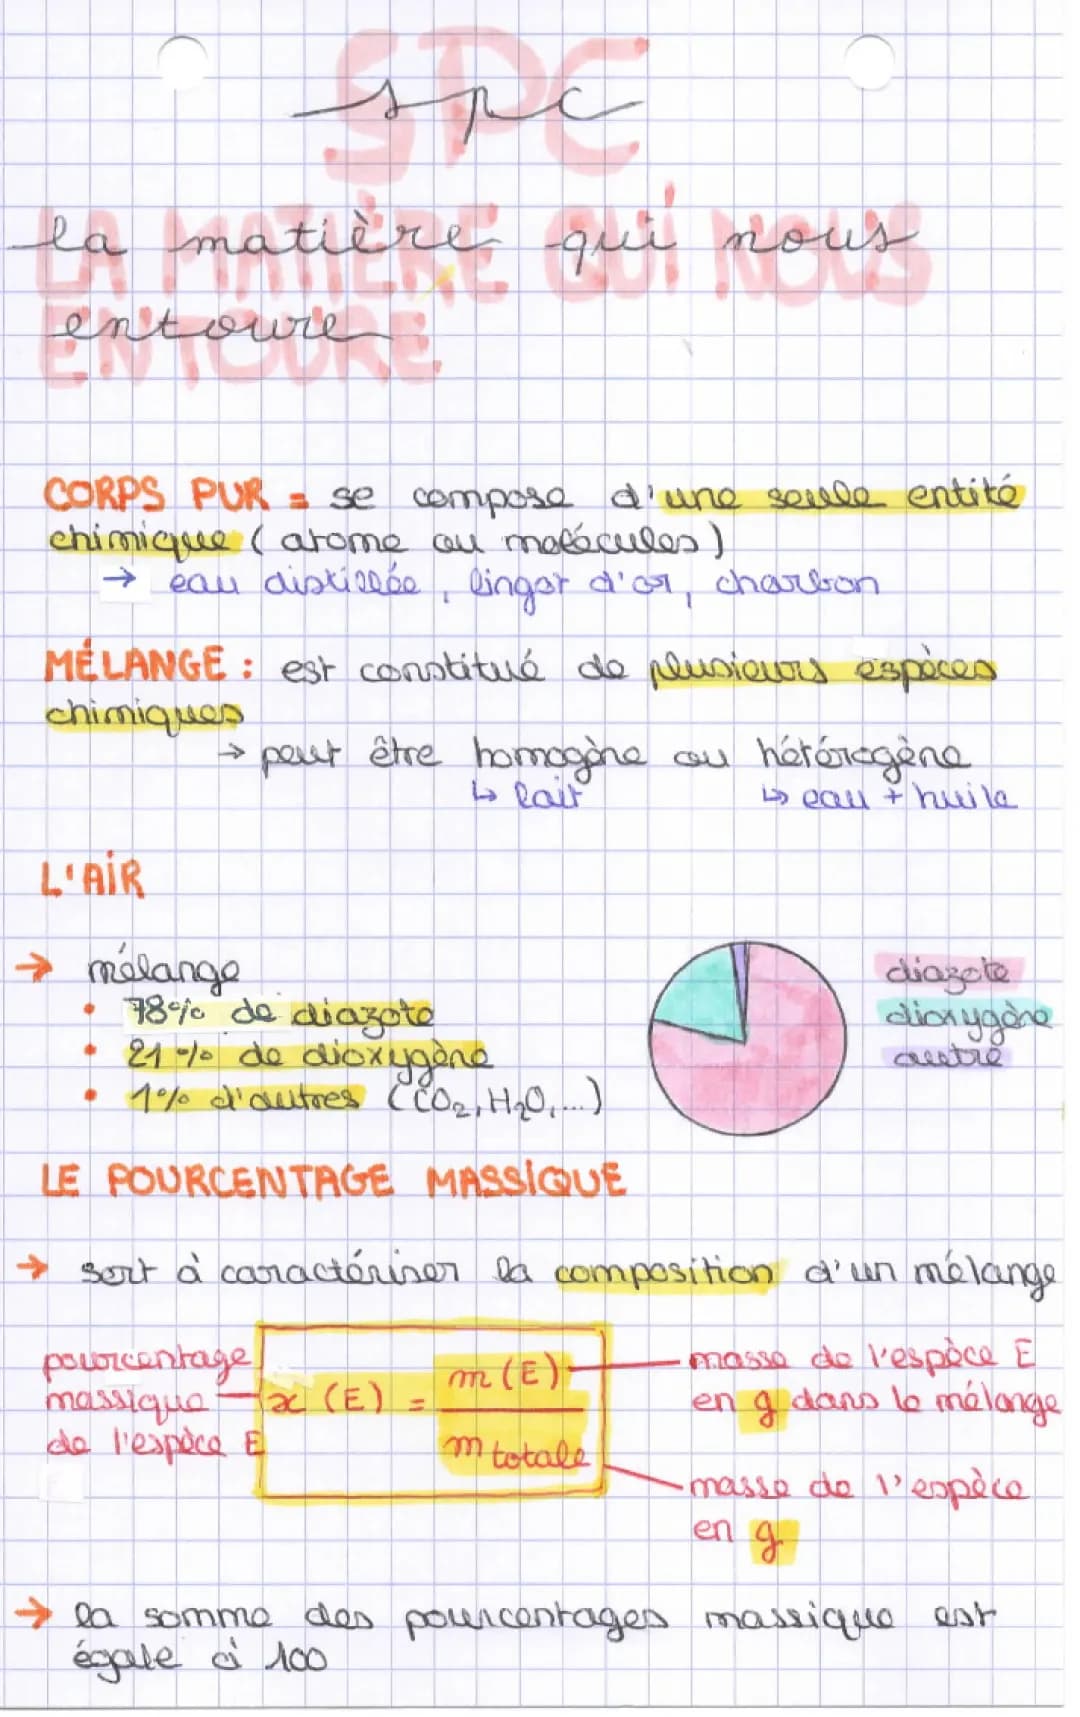 SPC
spc
LA MATIÈRE QUI NOUS
la matière qui nous
ENTOURE
entoure
CORPS PUR = se compose d'une seule entité
chimique (atome ou molécules)
→ eau distillée, lingot d'or, charbon
MÉLANGE : est constitué de plusieurs espèces
chimiques
→ peut être homogène ou hétérogène
↳ lait ↳ eau + huile
L'AIR
→ mélange
• 78% de diazote
• 21% de dioxygène
• 1% d'autres (CO₂, H₂O, ...)
diazote
dioxygène
autre
LE POURCENTAGE MASSIQUE
→ sert à caractériser la composition d'un mélange
pourcentage
massique
de l'espèce E
x (E) = m (E) / m totale
masse de l'espèce E
en g dans le mélange
masse de l'espèce
en g
→ la somme des pourcentages massique est
égale à 100